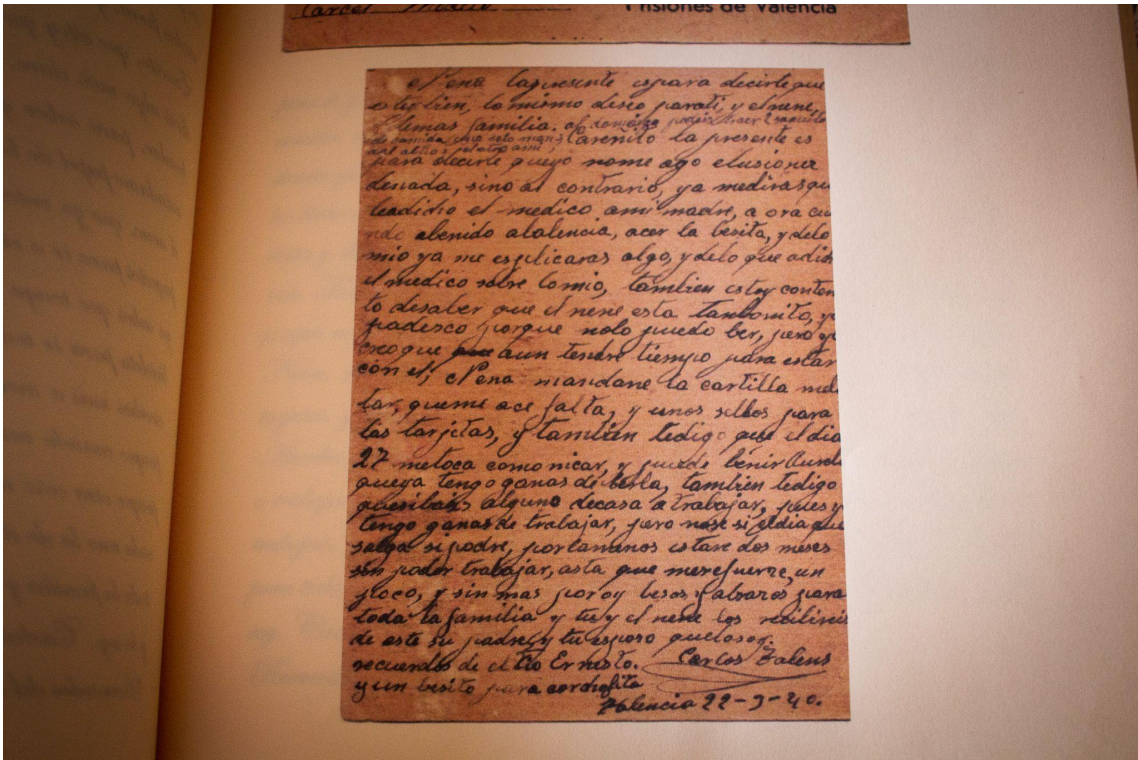 Carcel Modelo
Prisiones de Valencia
Nena lapresente espara decirteque
estoy bien, lo mismo deseo parati, y elnene,
demas familia. al domingo podeis traer
de comida
Carenito la presente es
para decirte queyo nome ago elusiones
denada, sino al contrario, ya medirasque
leadicho el medico ami madre, a ora cua
ndo abenido abalencia, acer la besita, ydelo
mio ya me esplicaras algo, ydelo que adich
el medico sobre lomio, tambien estoy conten
to desaber que el nene esta tanbonito, yo
padesco porque nolo puedo ber, pero yo
creoque aun tendre tiempo para estar
con el, Nena mandane la cartilla mili
tar, queme ace falta, y unos sellos para
las tarjetas, y tambien tedigo que eldia
27 metoca comonicar, y puede benir
queya tengo ganas de berla, tambien tedigo
alguno decasa a trabajar, pues y
tengo ganas de trabajar, pero nose si eldia que
salga si podre, porlomenos estare dos meses
sin poder trabajar, asta que merefuerze, un
poco, y sin mas poroy besos y abrazos para
toda la familia y tu y el nene los recibireis
de este su padre y tu esposo
recuerdos de el tio Ernesto. Carlos Talens
y un besito para
Valencia 22-9-40.